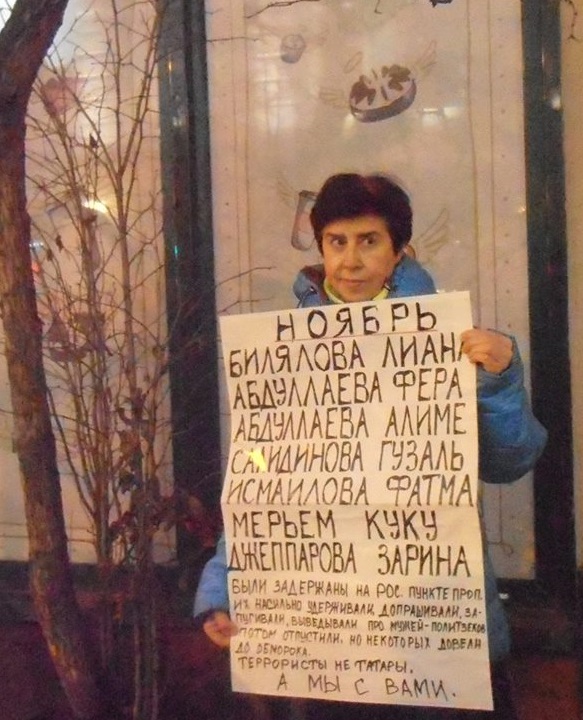 НОЯБРЬ
БИЛЯЛОВА ЛИАНА
АБДУЛЛАЕВА ФЕРА
АБДУЛЛАЕВА АЛИМЕ
САЙИДИНОВА ГУЗАЛЬ
ИСМАИЛОВА ФАТМА
МЕРЬЕМ КУКУ
ДЖЕППАРОВА ЗАРИНА
БЫЛИ ЗАДЕРЖАНЫ НА РОС. ПУНКТЕ ПРОП.
ИХ НАСИЛЬНО УДЕРЖИВАЛИ, ДОПРАШИВАЛИ, ЗА-
ПУГИВАЛИ, ВЫВЕДЫВАЛИ ПРО МУЖЕЙ-ПОЛИТЗЕКОВ
ПОТОМ ОТПУСТИЛИ, НО НЕКОТОРЫХ ДОВЕЛИ
ДО ОБМОРОКА.
ТЕРРОРИСТЫ НЕ ТАТАРЫ,
А МЫ С ВАМИ.